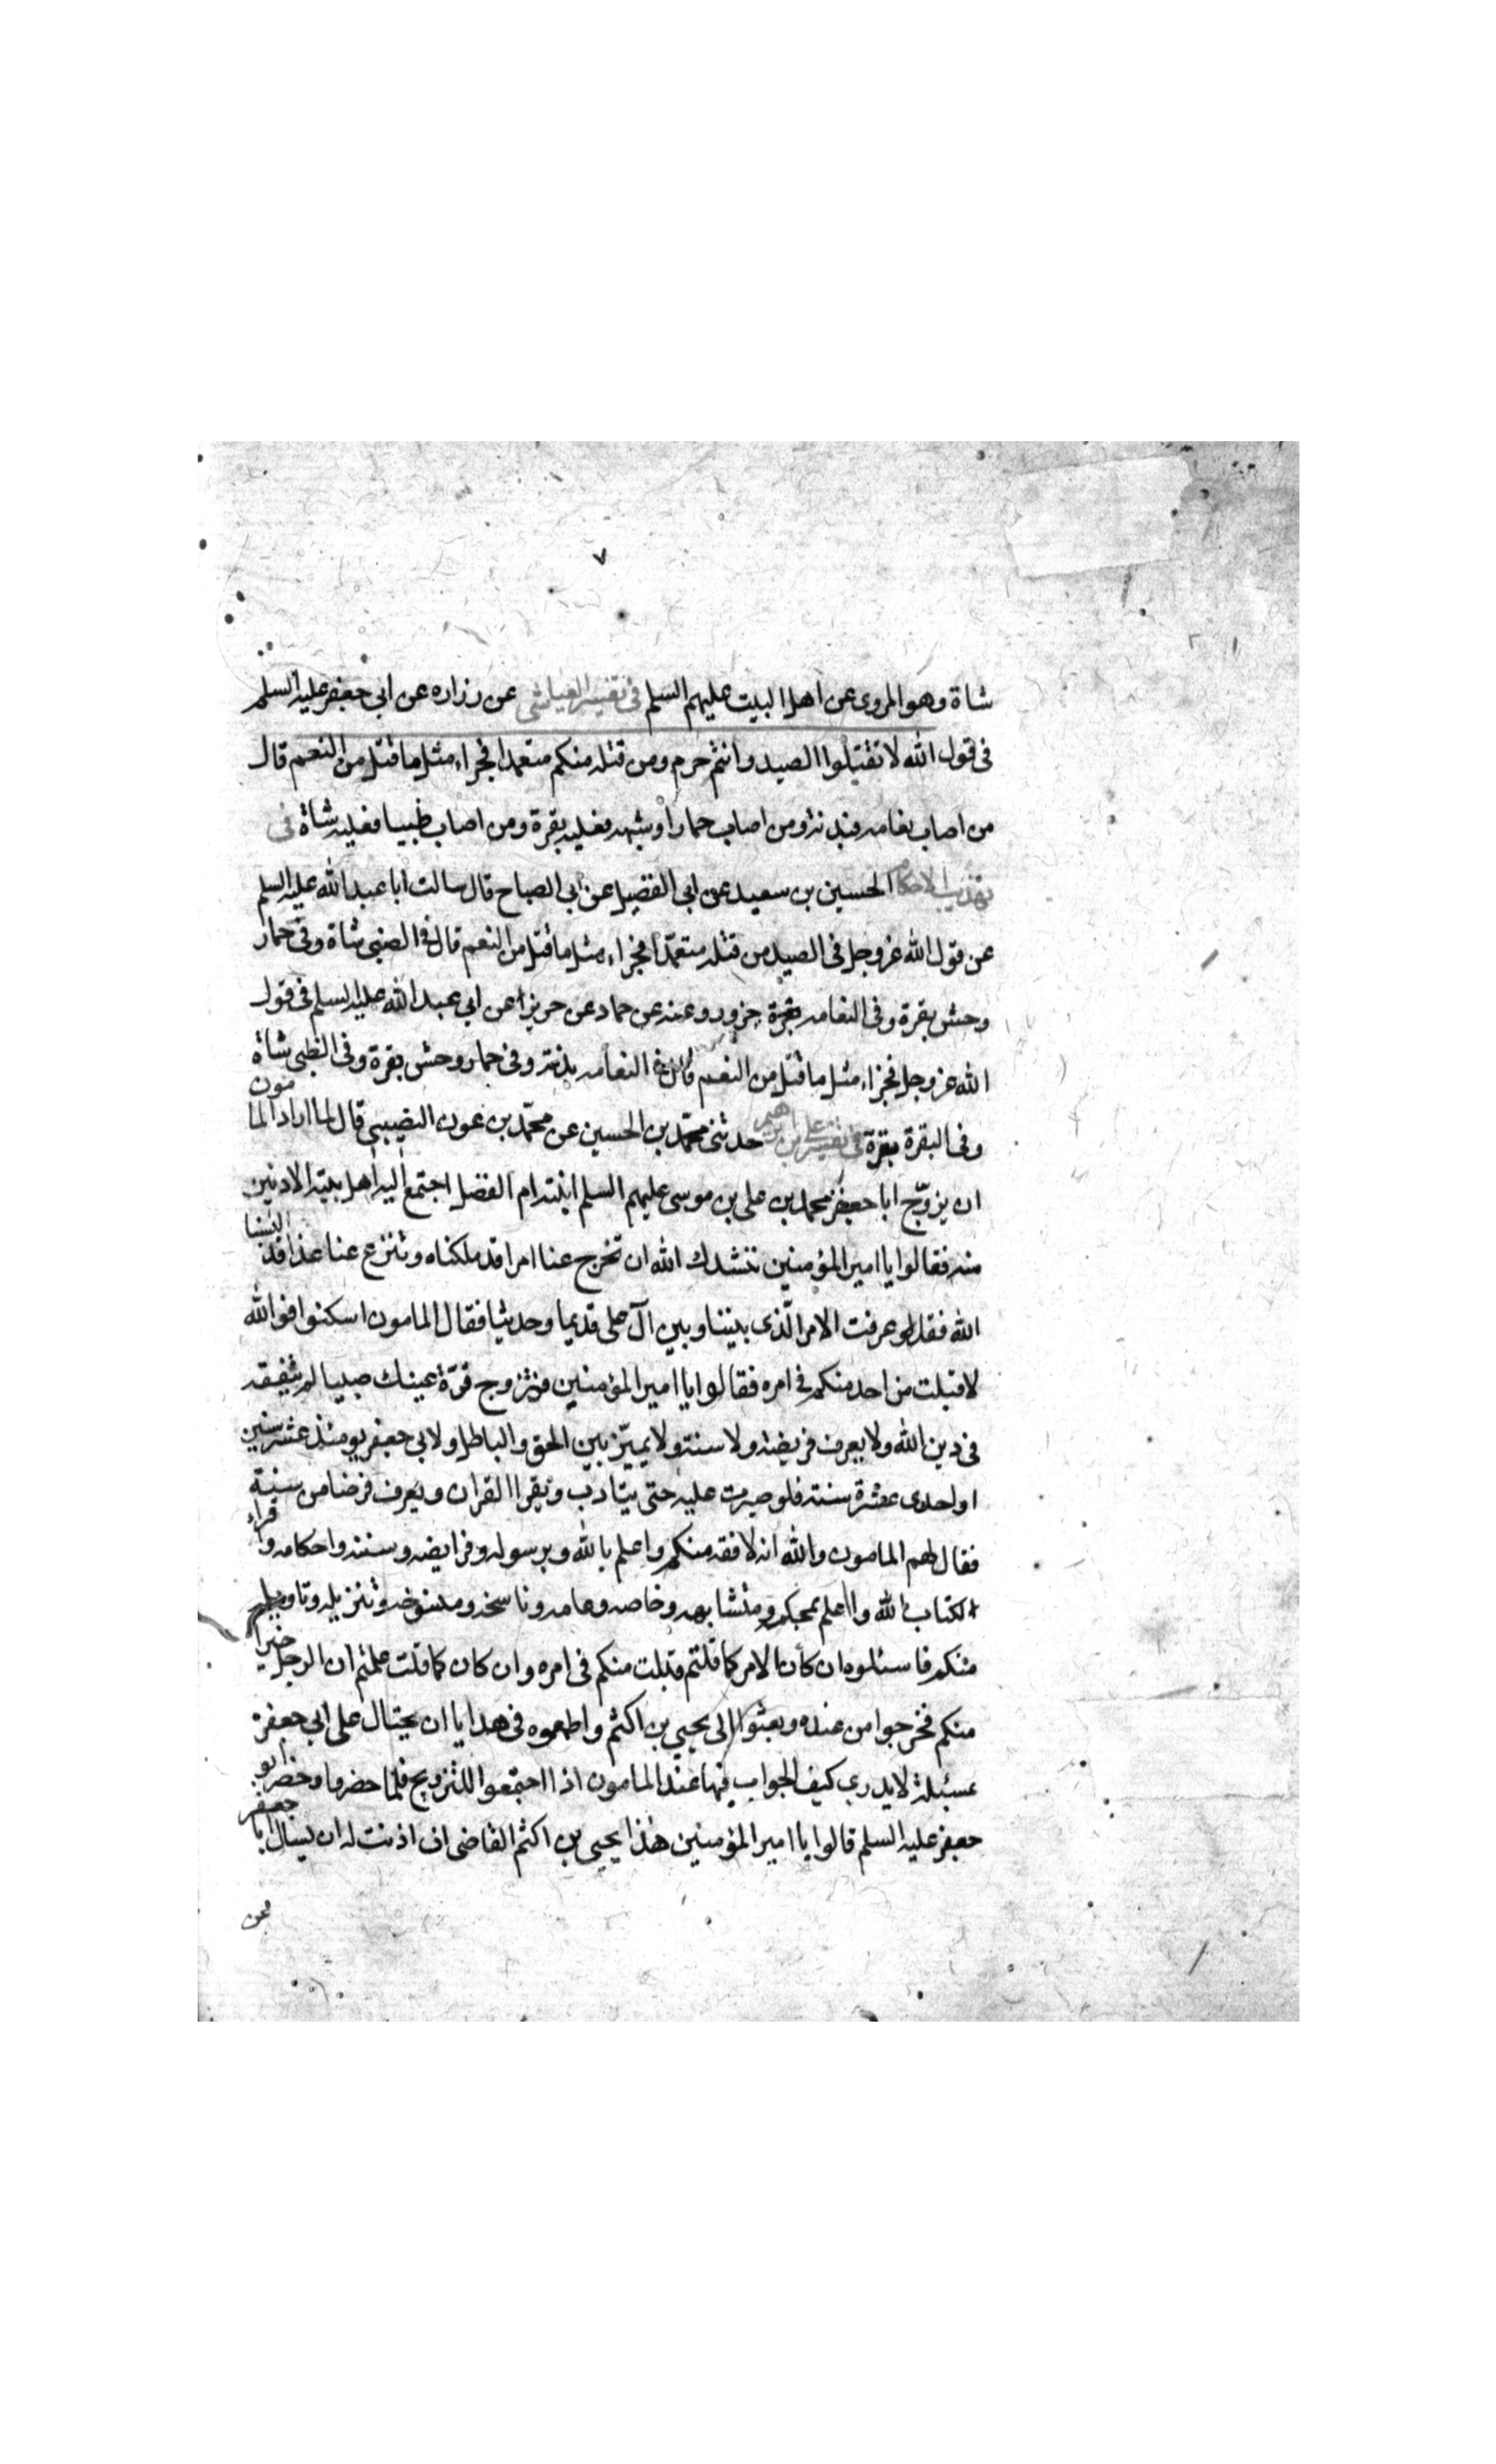 ٧
شاة وهو المروى عن اهل البيت عليهم السلم فى تفسير العياشى عن رزاره عن ابى جعفر عليه السلم
فى قول الله لا تقتلوا الصيد وانتم حرم ومن قتله منكم متعمدا فجزاء مثل ما قتل من النعم قال
من اصاب نعامه فبدنة ومن اصاب حمارا وشبهه فعليه بقرة ومن اصاب ظبيا فعليه شاة فى
تهذيب الاحكام الحسين بن سعيد عن ابى الفضيل عن ابى الصباح قال سالت ابا عبد الله عليه السلم
عن قول الله عز وجل فى الصيد من قتله متعمّدا فجزاء مثل ما قتل من النعم قال فى الضبى شاة وفى حمار
وحش بقرة وفى النعامه بقرة جزور وعنه عن حماد عن حريز عن ابى عبد الله عليه السلم فى قول
الله عز وجل فجزاء مثل ما قتل من النعم قال فى النعامه بدنة وفى حمار وحش بقرة وفى الظبى شاة
وفى البقرة بقرة فى تفسير على بن ابرهيم حدثنى محمّد بن الحسين عن محمّد بن عون النصيبى قال لما اراد المامون
ان يزوّج ابا جعفر محمد بن على بن موسى عليهم السلم ابنته ام الفضل اجتمع اليه اهل بيته الادنين
منه فقالوا يا امير المؤمنين ننشدك الله ان تخرج عنا امرا قد ملكناه وتنزع عنا عذا قد البسنا
الله فقد عرفت الامر الّذى بيننا وبين آل على قديما وحديثا فقال المامون اسكتوا فوالله
لا قبلت من احد منكم فى امره فقالوا يا امير المؤمنين فتزوج قرّة عينك صبيا لم يتفقه
فى دين الله ولا يعرف فريضة ولا سنة ولا يميّز بين الحق والباطل ولابى جعفر يومئذ عشر سنين
او احدى عشرة سنة فلو صبرت عليه حتى يتادب ويقرا القران ويعرف فرضا من سنة
فقال لهم المامون والله انه لافقه منكم واعلم بالله وبرسوله وفرايضه وسننه واحكامه واقراء
لكتاب الله واعلم بمحكمه ومتشابهه وخاصه وعامه وناسخه ومنسوخه وتنزيله وتاويله
منكم فاسئلوه ان كان الامر كما قلتم قبلت منكم فى امره وان كان كما قلت علمتم ان الرجل خيرا
منكم فخرجوا من عنده وبعثوا الى يحيى بن اكثم واطمعوه فى هدايا ان يحتال على ابى جعفر
بمسئلة لا يدرى كيف الجواب فيها عند المامون اذا اجتمعوا للتزويج فلما حضروا وحضر ابو جعفر
جعفر عليه السلم قالوا يا امير المؤمنين هذا يحيى بن اكثم القاضى ان اذنت له ان يسال ابا